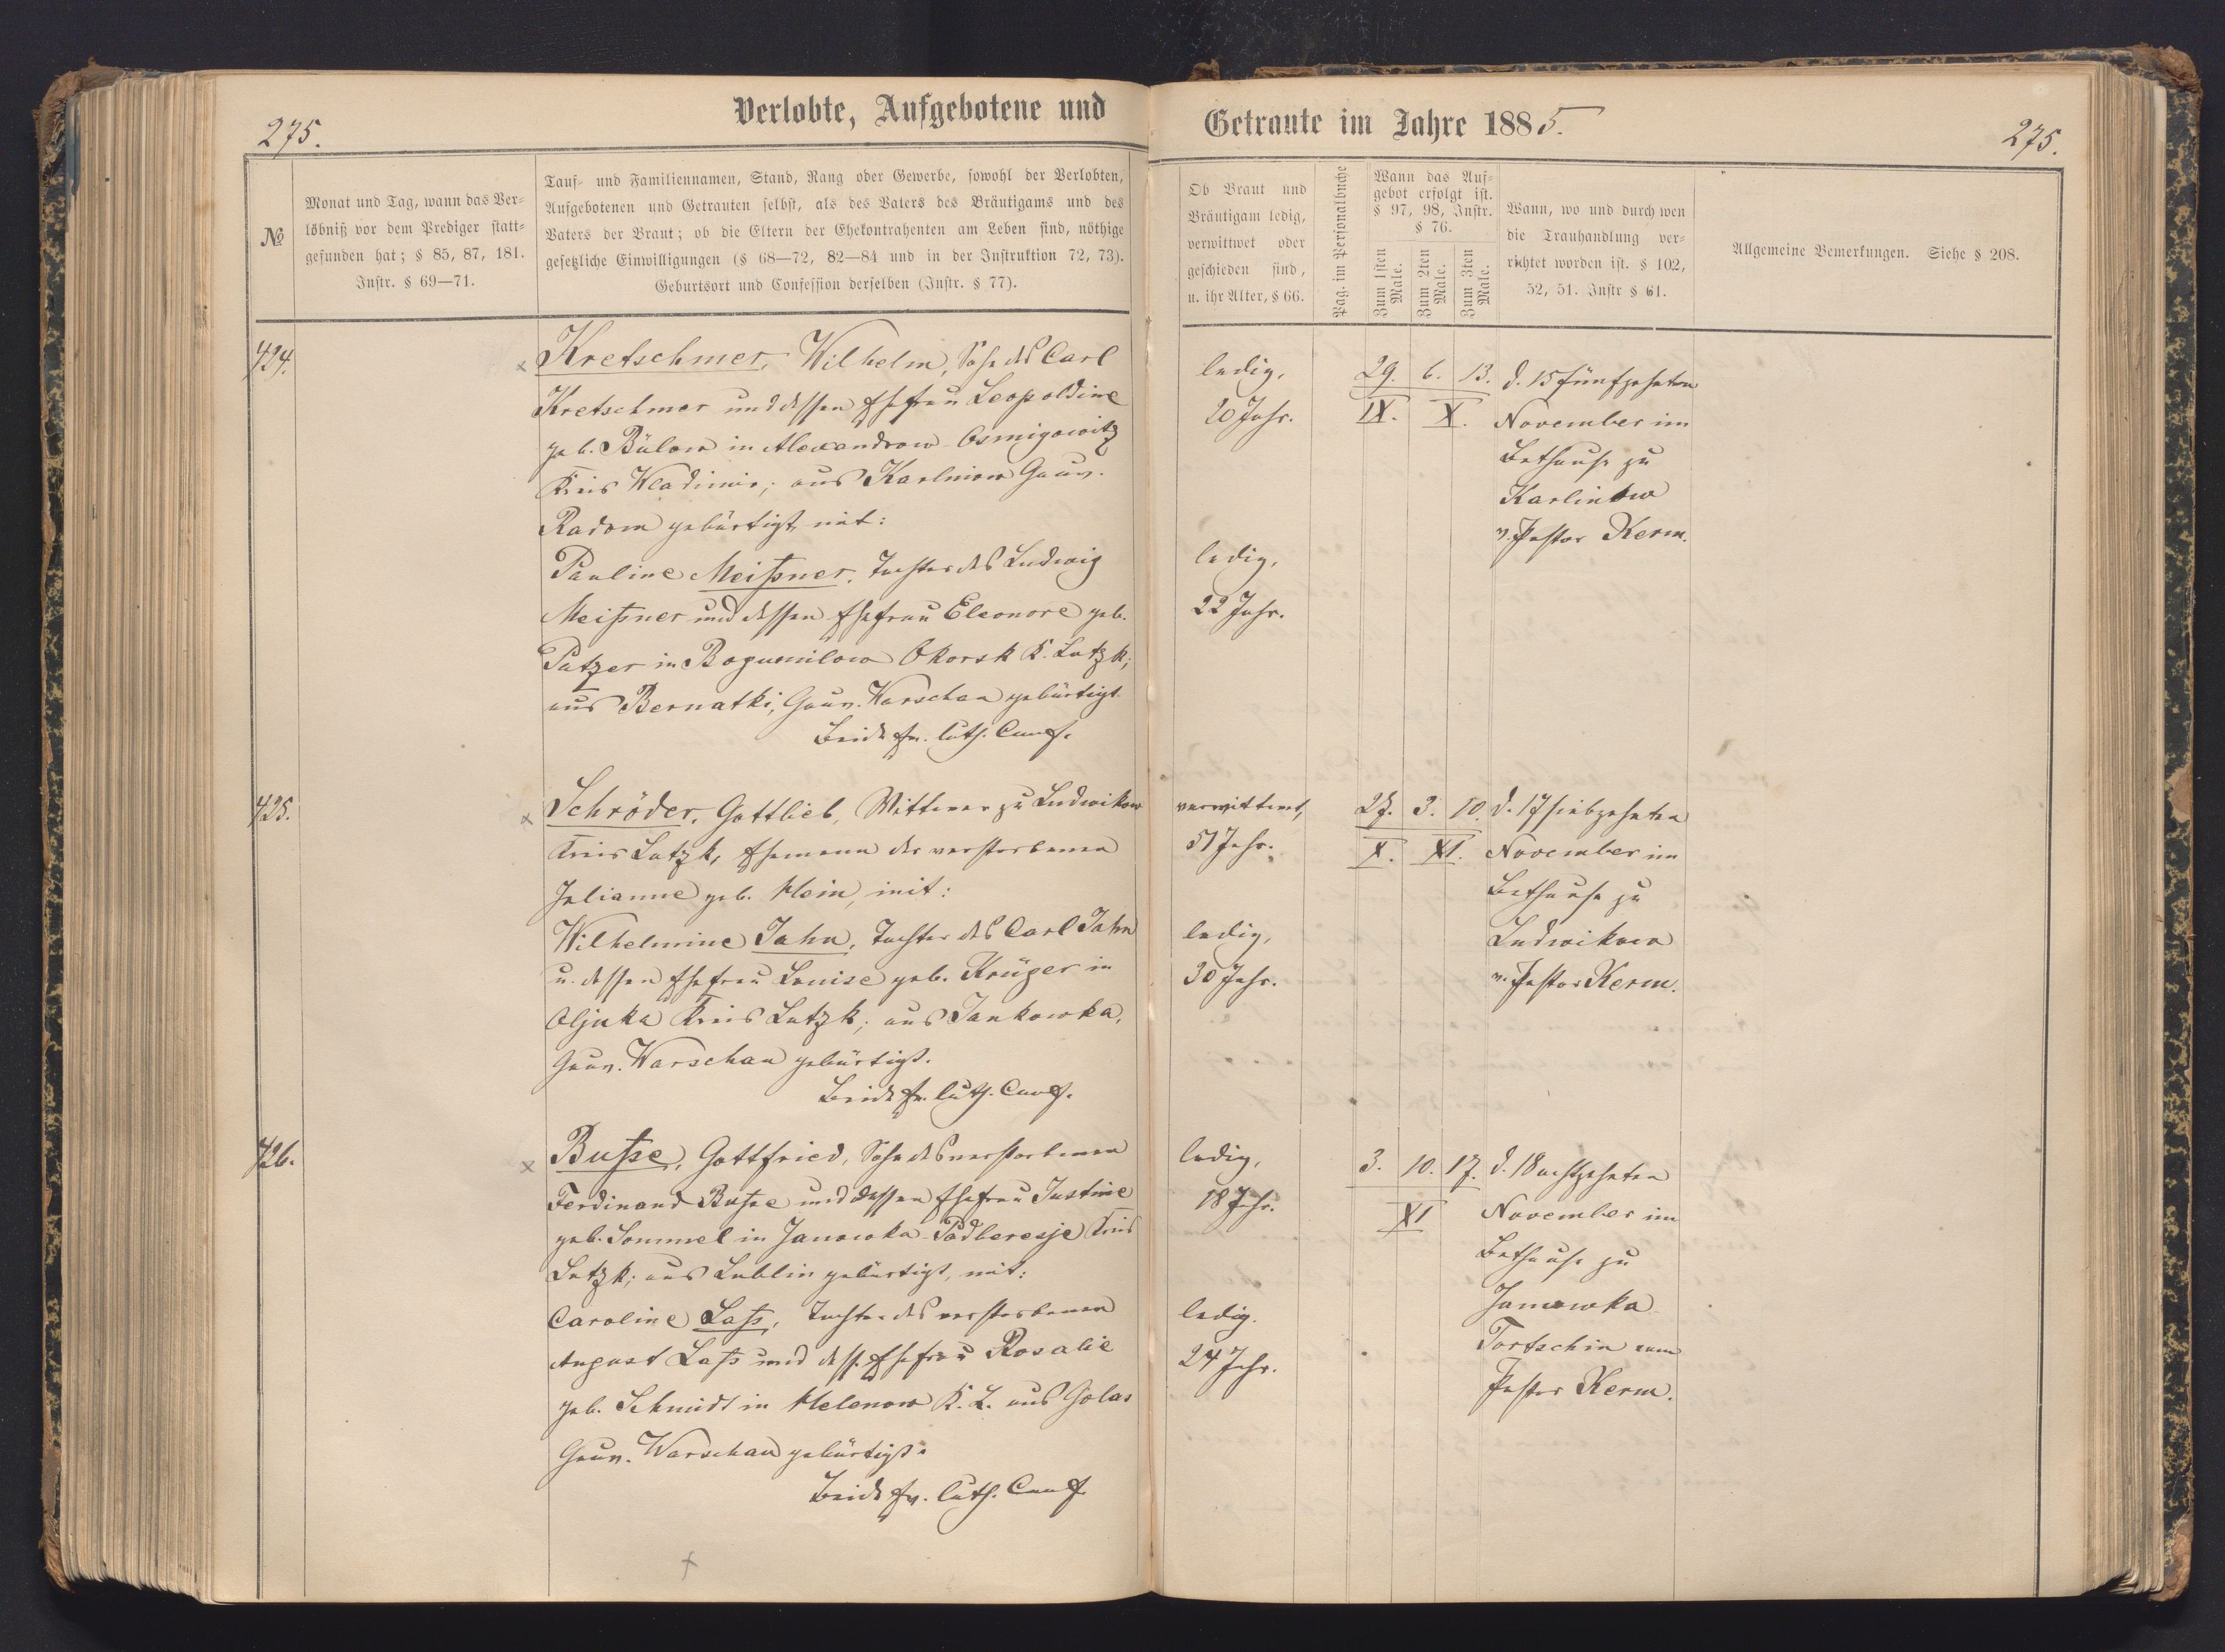 275.
Verlobte, Aufgebotene und
№
Monat und Tag, wann das Ver=
löbniß vor dem Prediger statt=
gefunden hat; § 85, 87, 181.
Instr. § 69—71.
Tauf= und Familiennamen, Stand, Rang oder Gewerbe, sowohl der Verlobten,
Aufgebotenen und Getrauten selbst, als des Vaters des Bräutigams und des
Vaters der Braut; ob die Eltern der Ehekontrahenten am Leben sind, nöthige
gesetzliche Einwilligungen (§ 68—72, 82—84 und in der Instruktion 72, 73).
Geburtsort und Confession derselben (Instr. § 77).
424.
Kretschmer, Wilhelm, Sohn des Carl
Kretschmer und dessen Ehefrau Leopoldine
geb. Bülow in Alexandrow-Osmigowitz
Kreis Wladimir; aus Karlinow Gouv.
Radom gebürtigt mit:
Pauline Meißner, Tochter des Ludwig
Meißner und dessen Ehefrau Eleonore geb.
Patzer in Bogumilow Okorsk K. Lutzk;
aus Bernatki, Gouv. Warschau gebürtigt.
Beide ev. luth. Conf.
425.
Schröder, Gottlieb, Wittwer zu Ludwikow
Kreis Lutzk, Ehemann der verstorbenen
Julianne geb. Klein, mit:
Wilhelmine Jahn, Tochter des Carl Jahn
u. dessen Ehefrau Louise geb. Krüger in
Oljuka Kreis Lutzk; aus Jankowka,
Gouv. Warschau gebürtigt.
Beide ev. luth. Conf.
426.
Buße, Gottfried, Sohn des verstorbenen
Ferdinand Buße und dessen Ehefrau Justine
geb. Sommel in Janowka-Padberesje Kreis
Lutzk; aus Lublin gebürtigt, mit:
Caroline Laß, Tochter des verstorbenen
August Laß und dess. Ehefrau Rosalie
geb. Schmidt in Helenow K. L. aus Golas
Gouv. Warschau gebürtigt.
Beide ev. luth. Conf.
Getraute im Jahre 1885.
275.
Ob Braut und
Bräutigam ledig,
verwittwet oder
geschieden sind,
u. ihr Alter, § 66.
Pag. im Personalbuche
Wann das Auf=
gebot erfolgt ist.
§ 97, 98, Instr.
§ 76.
Zum 1sten Male.
Zum 2ten Male.
Zum 3ten Male.
Wann, wo und durch wen
die Trauhandlung ver=
richtet worden ist. § 102,
52, 51. Instr § 61.
Allgemeine Bemerkungen. Siehe § 208.
ledig,
20 Jahr.
29. 6. 13.
IX. X.
d. 15 fünfzehnten
November im
Bethause zu
Karlinow
v. Pastor Kerm.
ledig,
22 Jahr.
verwittwet,
51 Jahr.
27. 3. 10.
X. XI.
d. 17 siebzehnten
November im
Bethause zu
Ludwikow
v. Pastor Kerm.
ledig,
30 Jahr.
ledig,
18 Jahr.
3. 10. 17.
XI
d. 18 achtzehnten
November im
Bethause zu
Janowka
Tortschin vom
Pastor Kerm.
ledig.
24 Jahr.